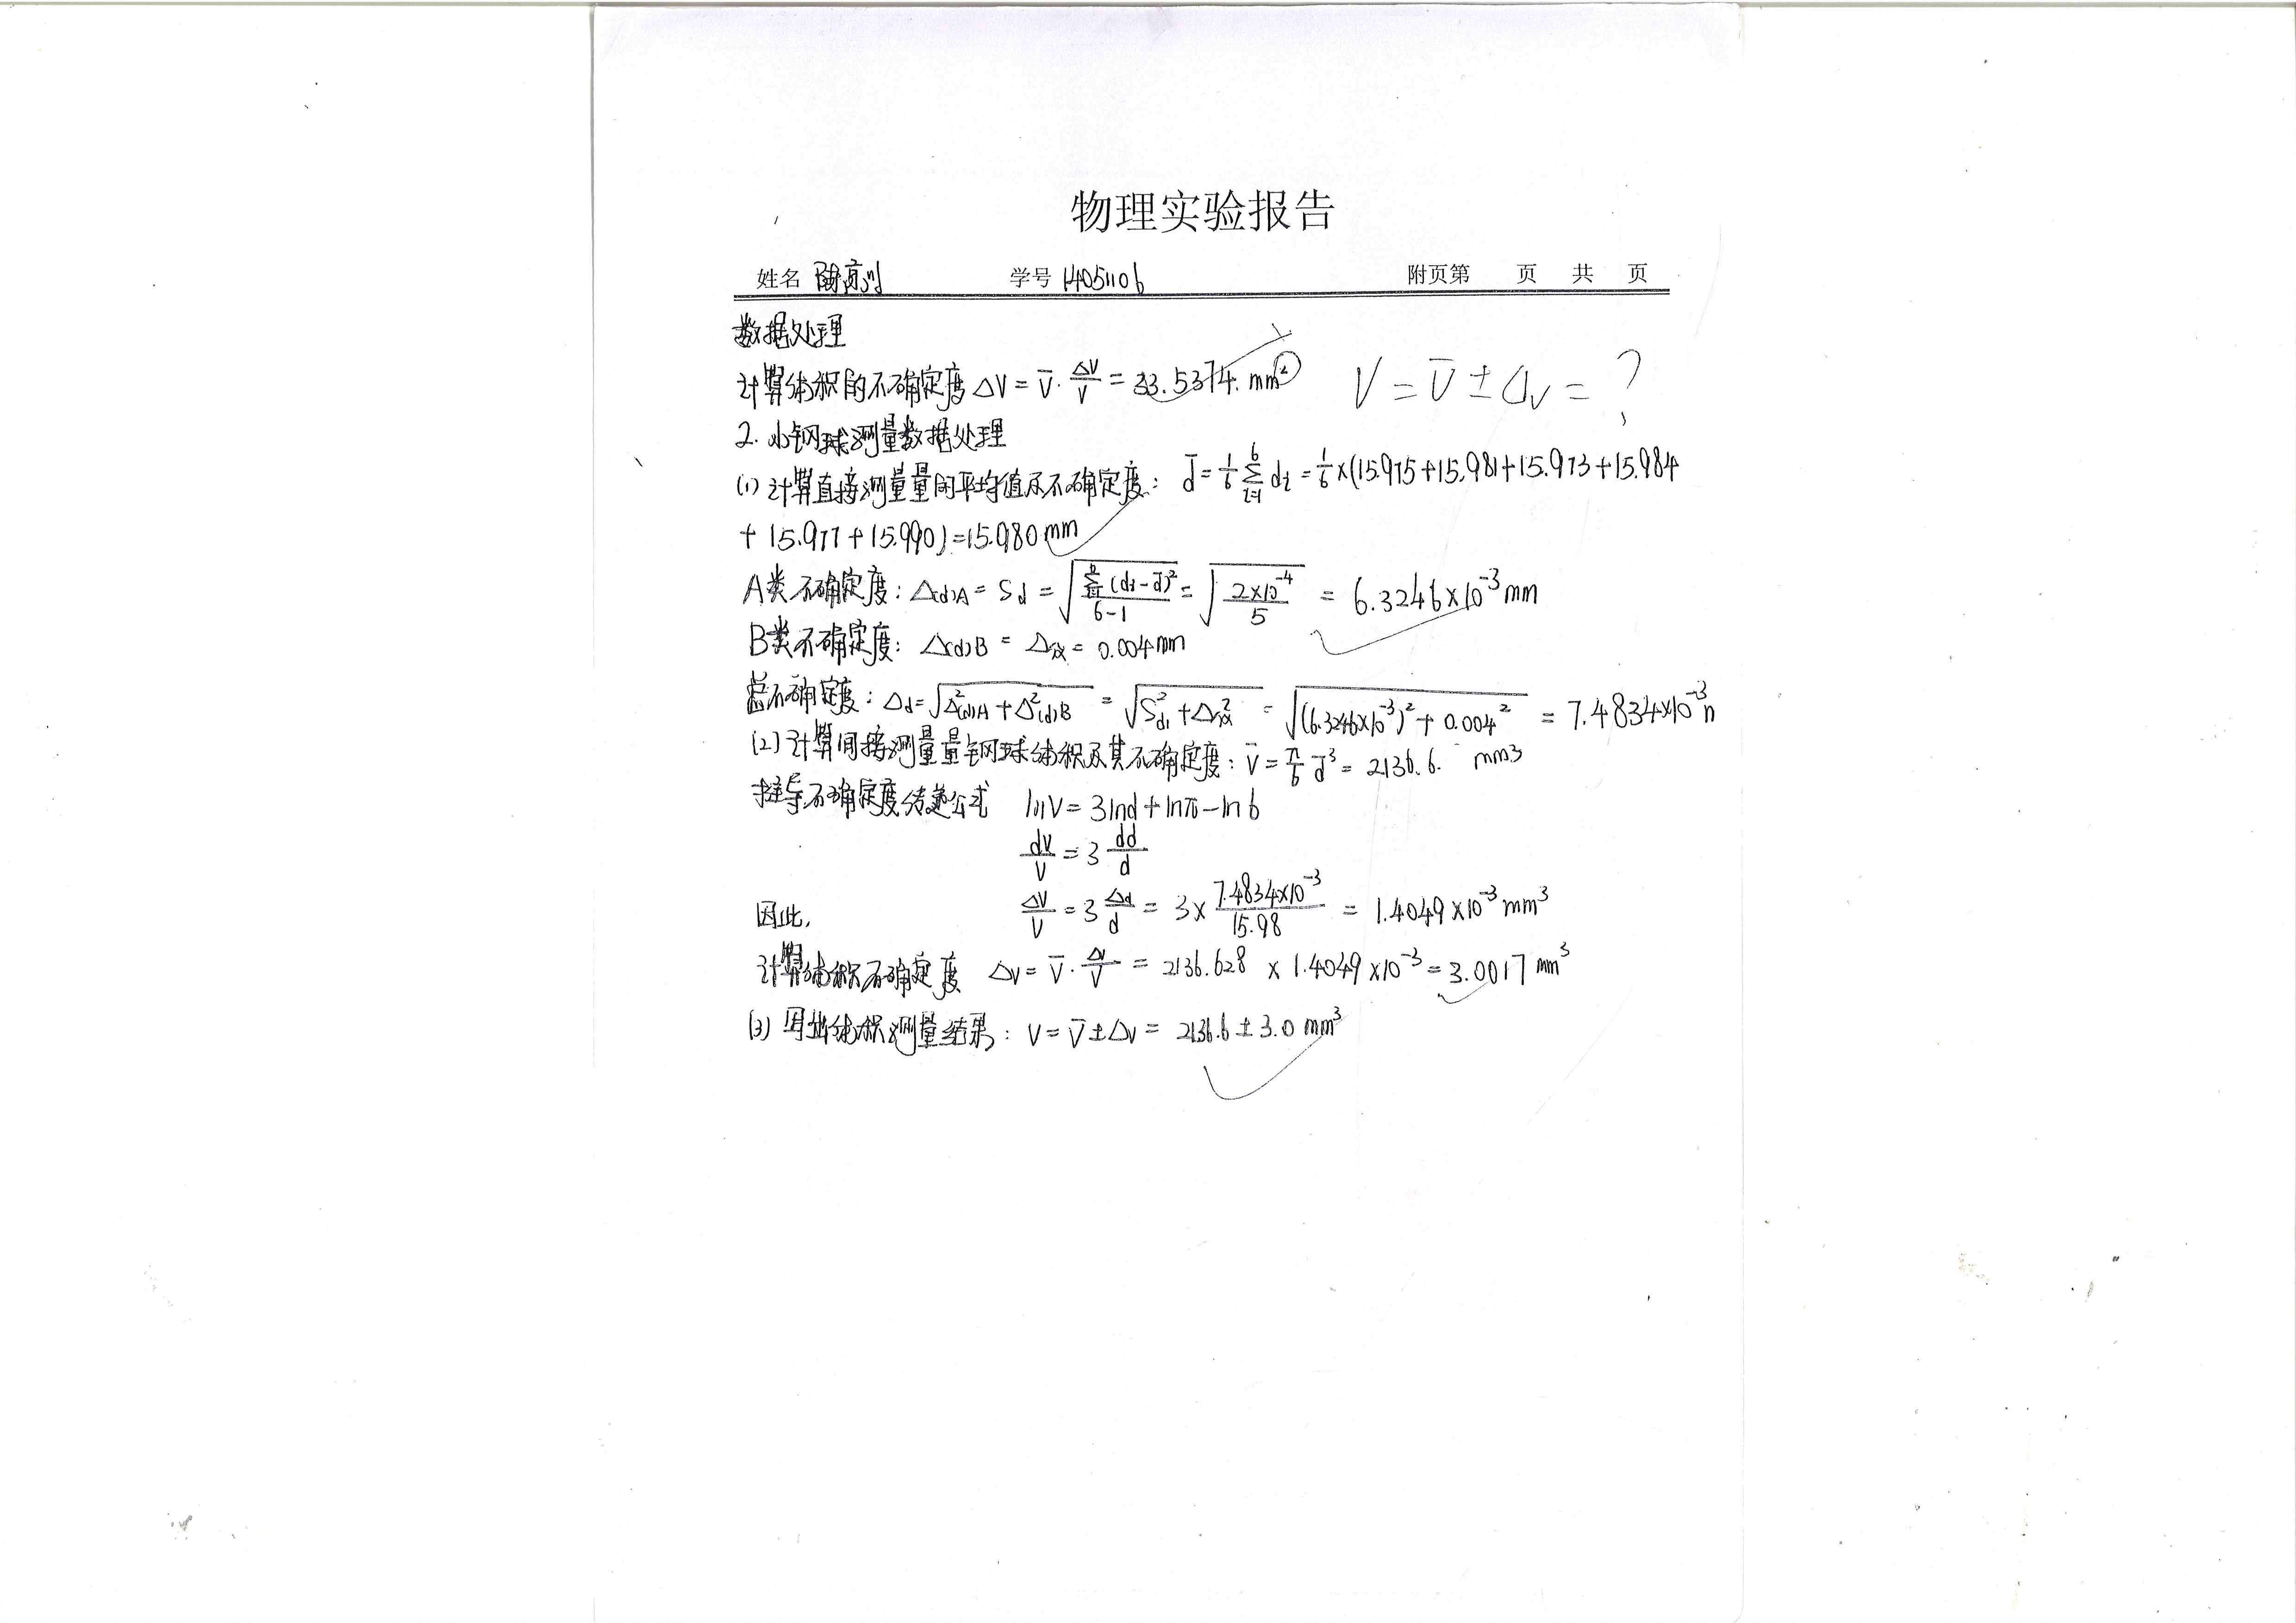 物理实验报告
姓名 学号 14051106 附页第 页 共 页
数据处理
计算体积的不确定度 ΔV = V̄ · ΔV/V = 33.5374. mm² V = V̄ ± Δv = ?
2. 小钢球测量数据处理
(1) 计算直接测量量的平均值及不确定度: d̄ = 1/6 Σ(i=1→6) di = 1/6 ×(15.975+15.981+15.973+15.984
+ 15.977+15.990)=15.980mm
A类不确定度: Δ(d)A = Sd = √(Σ(di-d̄)²/(6-1)) = √(2×10⁻⁴/5) = 6.3246×10⁻³mm
B类不确定度: Δ(d)B = Δ仪 = 0.004mm
总不确定度: Δd=√(Δ²(d)A+Δ²(d)B) = √(S²d1+Δ仪²) = √((6.3246×10⁻³)²+0.004²) = 7.4834×10⁻³m
(2) 计算间接测量量钢球体积及其不确定度: V̄ = π/6 d̄³ = 2136.6. mm³
推导不确定度传递公式 lnV=3lnd+lnπ-ln6
dV/V = 3 dd/d
因此, ΔV/V = 3 Δd/d = 3× 7.4834×10⁻³/15.98 = 1.4049×10⁻³mm³
计算体积不确定度 ΔV = V̄ · ΔV/V = 2136.628 × 1.4049×10⁻³=3.0017 mm³
(3) 写出体积测量结果: V=V̄±Δv = 2136.6±3.0 mm³